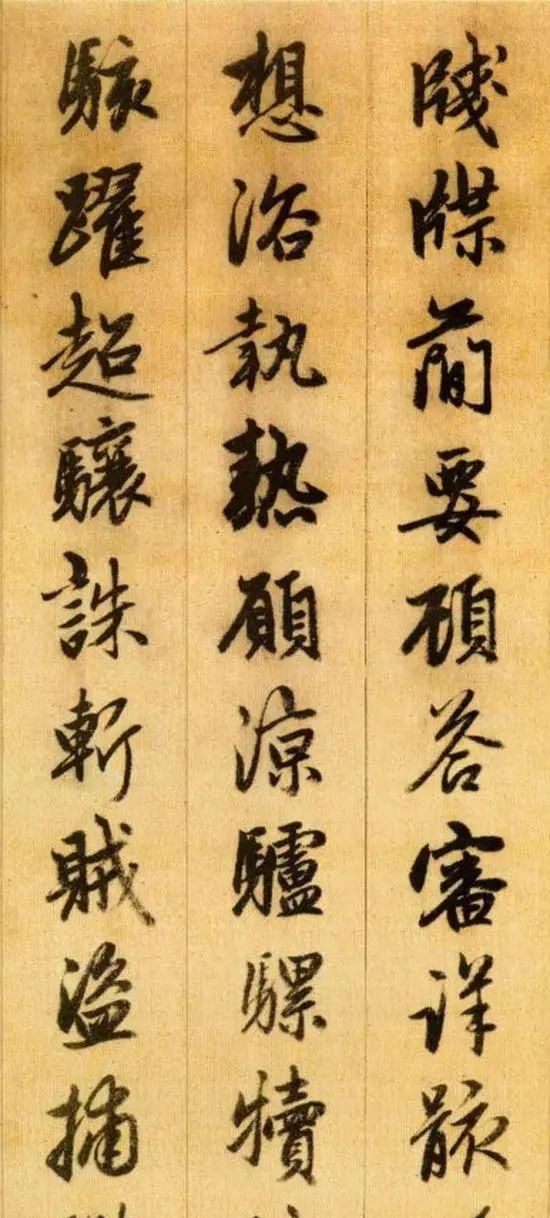 牋牒蕳要顧答審詳骸
想浴執熱願涼驢騾犢
駭躍超驤誅斬賊盜捕